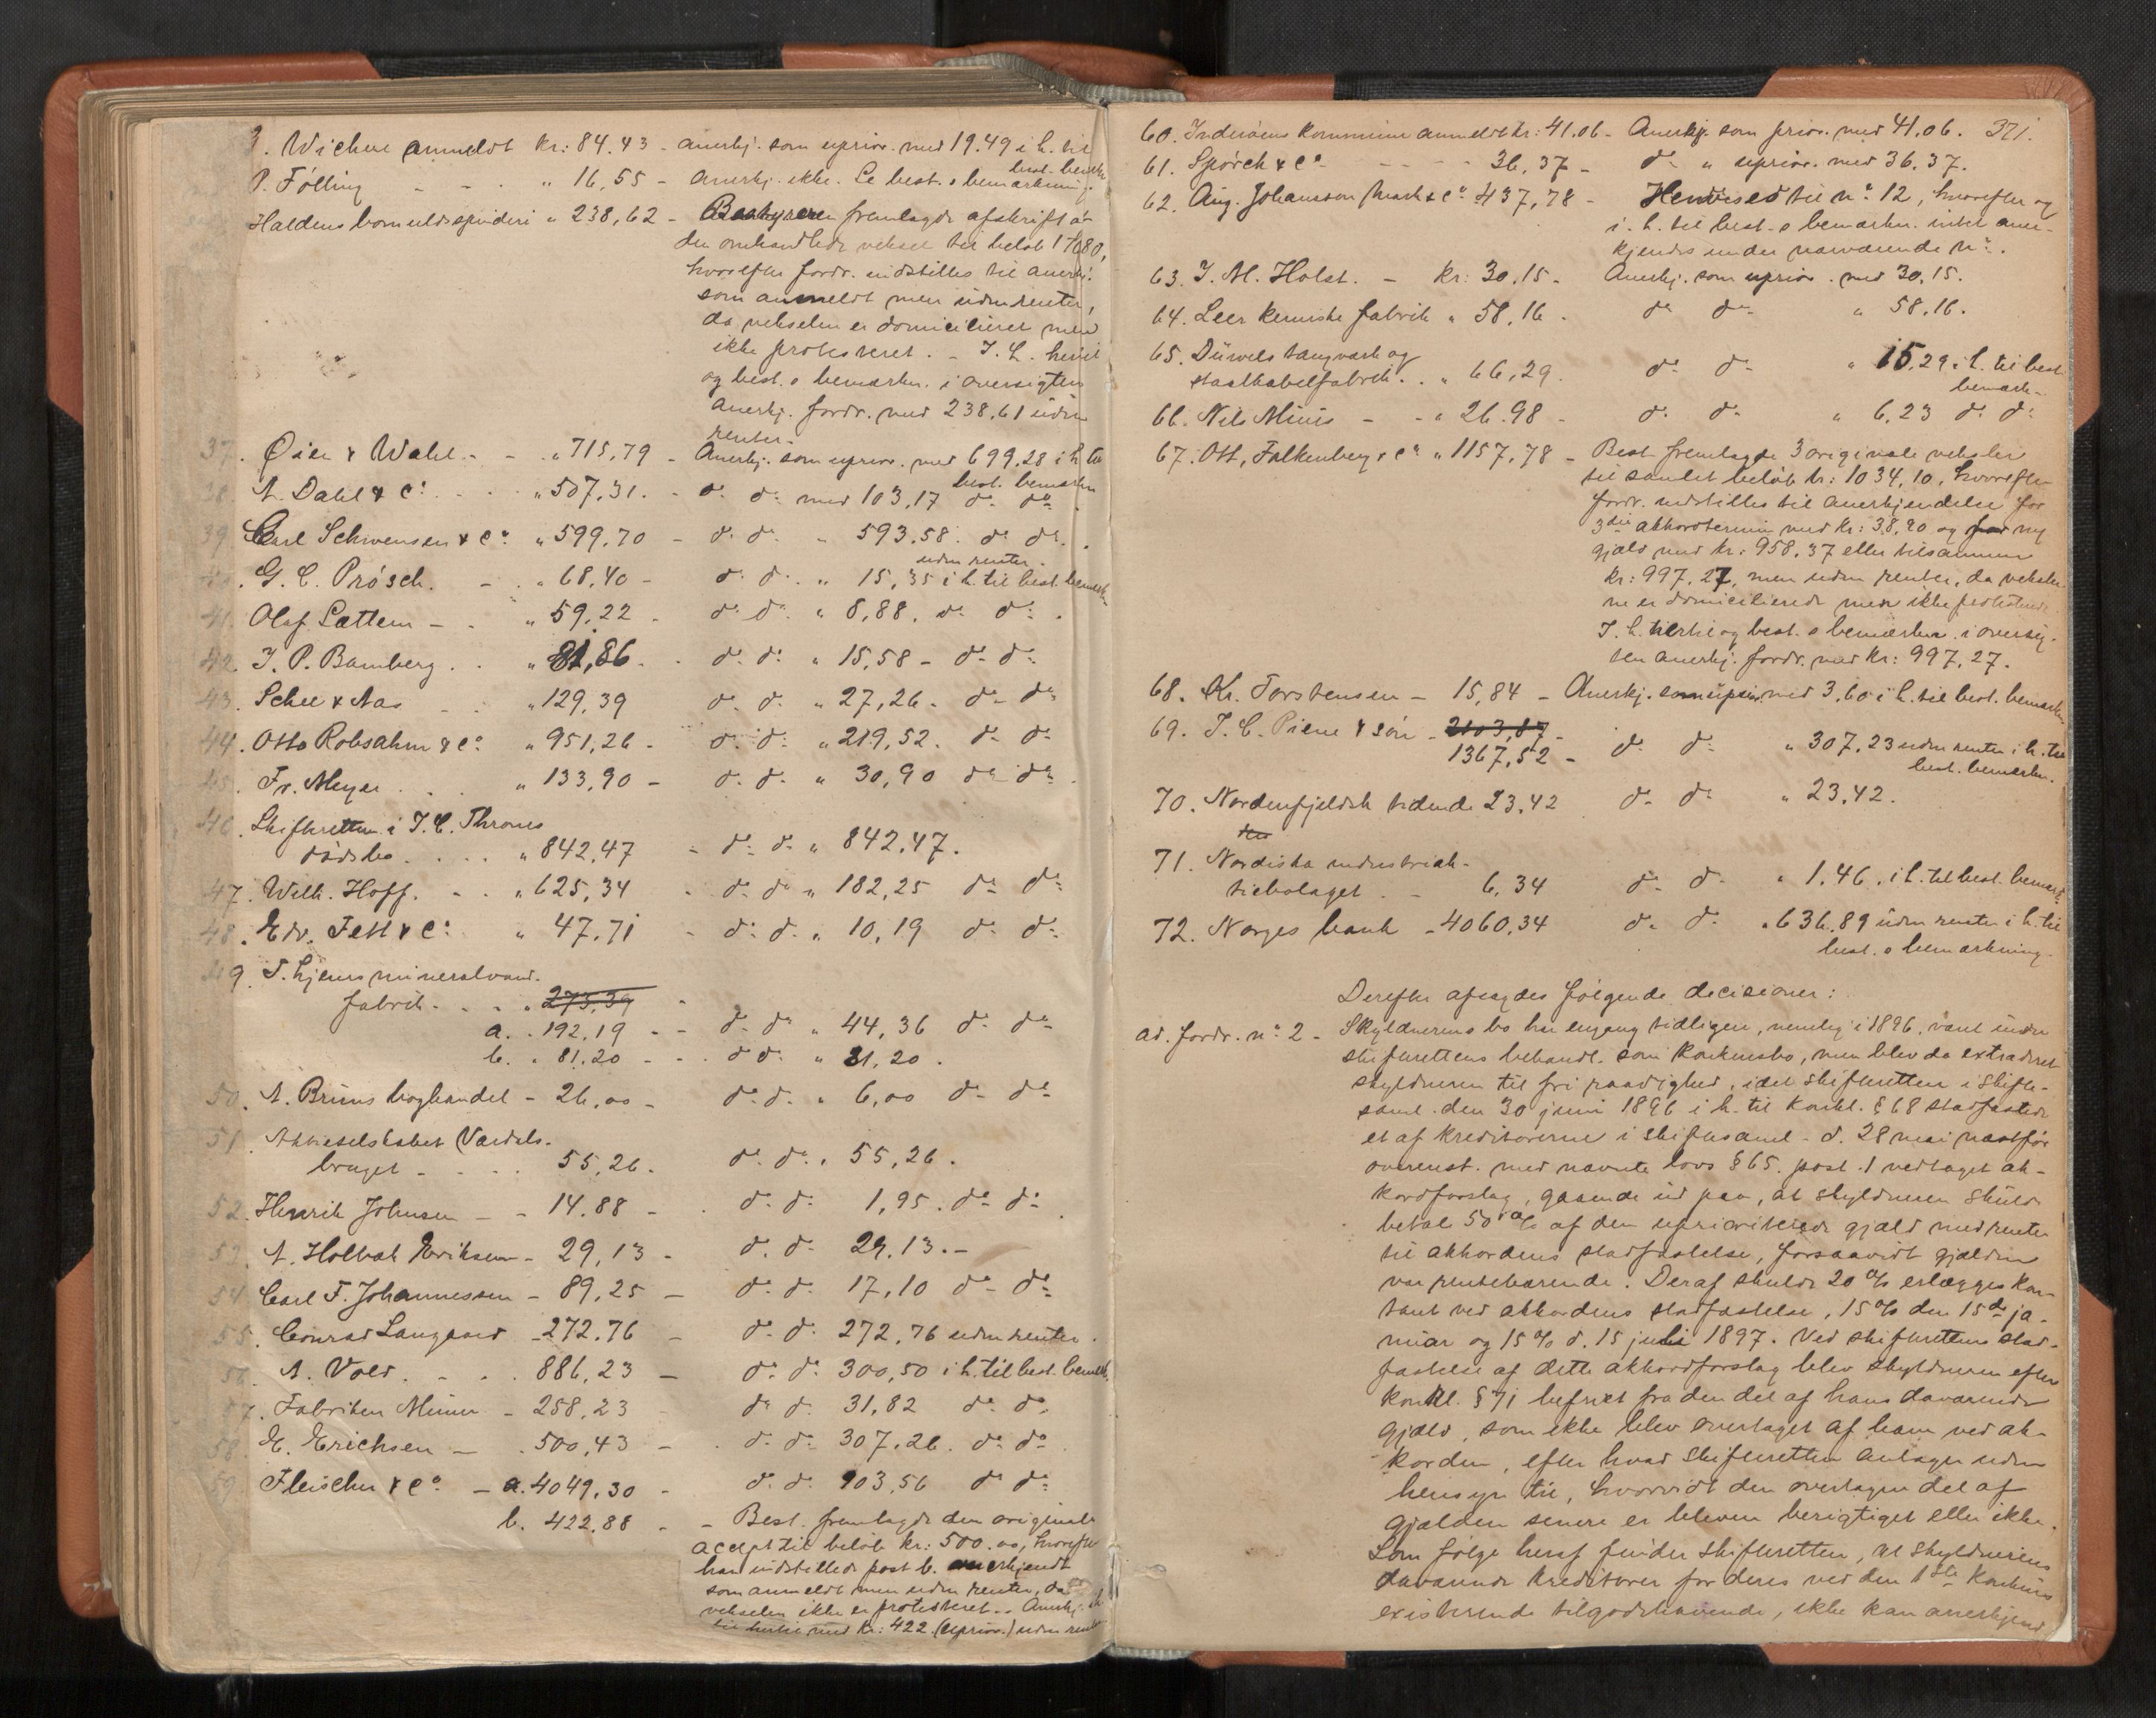 . Wichen anmeldt Kr: 84.43 - anerkj. som uprior. med 19.49 i h. til
best. bemærkn
P. Følling - - . " 16,55 - Anerkj. ikke. Se best.s bemærkning.
Haldens bomuldsspinderi " 238,62 - Bestyreren fremlagde afskrift af
den omhandlede veksel til beløb
hvorefter fordr. indstilles til anerkj.
som anmeldt men uden renter,
da vekselen er domicilieret men
ikke protesteret. - I. h. hertil
og best.s bemærkn. i oversigten
Anerkj. fordr. med 238.61 uden
renter.
37. Øien & Wahl. - - " 715,79 - Anerkj. som uprior. med 699,28 i h. til
best. bemærkn
38. A. Dahl & Co. . . " 507,31. - do. do. med 103,17 do. do.
39. Carl Schwensen & Co. " 599,70 - do. do. " 593.58. do. do.
uden renter.
40. G. C. Prösch. - . " 68,40 - do. do. " 15,35 i h. til best. bemærkn
41. Olaf Sættem - . " 59,22 - do. do. " 8,88. do. do.
42. I. P. Bamberg . . " 81,86. . do. do. " 15,58 - do. do.
43. Schee & Aas . . " 129,39 do. do. " 27,26. do. do.
44. Otto Robsahm & Co. " 951,26 - do. do. " 219,52. do. do.
45. Fr. Meyer . . " 133,90 - do. do. " 30,90 do. do.
46. Skifteretten i I. C. Thrones
dødsbo. . . . " 842,47 - do. do. " 842,47.
47. Wilh. Hoff. - . . " 625,34 - do. do. " 182,25 do. do.
48. Edv. Fett & Co. " 47,71 - do. do. " 10,19 do. do.
49. T.hjems mineralvand-
fabrik. . . " 273,39
a. . 192,19 - - do. do. " 44,36 do. do.
b. " 81,20 - - . do. do. " 81,20.
50. A. Bruns boghandel - 26,00 - do. do. " 6,00 do. do.
51. Aktieselskabet Værdals-
bruget - . . . 55,26. do. do. " 55,26.
52. Henrik Johnsen - - 14.88 - . do. do. 1,95. do. do.
53. A. Holbæk Eriksen - 29,13 - do. do. 29,13. -
54. Carl F. Johannessen - 89,25 - do. do. 17,10 do. do.
55. Conrad Langaard - 272.76 - do. do. 272,76 uden renter.
56. A. Vold. . - . . 886,23 - do. do. 300,50 i h. til best. bemærk.
57. Fabriken Minin - 258,23 - do. do. 31,82 do. do.
58. E. Erichsen - . 500,43 - . do. do. 307.26. do. do.
59. Fleischer & Co. - a. 4049,30 - do. do. 903,56 do. do.
b. 422,88 . - Best. fremlagde den originale
accept til beløb kr: 500.00, hvorefter
han indstillede post b. anerkjendt
som anmeldt men uden renter, da
vekselen ikke er protesteret. - Anerkj.
til hertil med Kr: 422. (uprior.) uden renter
60. Inderøens kommune anmeldt kr: 41.06 - Anerkj. som prior. med 41,06. 371.
61. Spørck & Co. - - - - 36,37 - do. " uprior. med 36,37.
62. Aug. Johanson & Co. 437,78 - Henvises til no. 12, hvorefter og
i. h. til best.s bemærkn. intet aner-
kjendes under nærværende no.
63. I. M. Holst. - Kr: 30,15 - Anerkj. som uprior. med 30,15.
64. Leer kemiske fabrik " 58,16. do. do. " 58,16.
65. Düwels taugværk og
staalkabelfabrik. . " 66,29. do. do. " 15,29 i h. til best.
bemærk.
66. Nils Minis - - " 26.98 - do. do. " 6,23 do. do.
67. Ott, Falkenberg & Co. " 1157,78 - Best. fremlagde 3 originale veksler
til samlet beløb kr: 1034,10, hvorefter
fordr. indstilles til anerkjendelse for
3die akkordtermin med kr: 38,90 og for ny
gjæld med kr: 958,37 eller tilsammen
kr: 997,27, men uden renter, da veksler-
ne er domicilierede men ikke protesterede.
I. h. hertil og best.s bemærkn. i oversig-
ten anerkj. fordr. med kr: 997,27.
68. Kr. Torstensen - 15,84 - Anerkj. som uprior. med 3,60 i h. til best. bemærkn.
69. I. C. Piene & søn - 2103,87 -
1367,52 - do. do. " 307,23 uden renter i h. til
best. bemærkn.
70. Nordenfjeldsk tidende 23,42 do. do. " 23,42.
71. Nordiska industriak-
tiebolaget. - 6,34 do. do. " 1,46, i h. til best. bemærk.
72. Norges bank - 4060,34 do. do. " 636,89 uden renter i h. til
best.s bemærkning.
Derefter afsagdes følgende decisioner:
ad. fordr. no. 2 - Skyldnerens bo har engang tidligere, nemlig i 1896, været under
skifterettens behandl. som konkursbo, men blev da extraderet
skyldneren til fri raadighed, idet skifteretten i skifte-
saml. den 30 juni 1896 i h. til konkl. § 68 stadfæstede
et af kreditorerne i skiftesaml. d. 28 mai næstfør
overenst. med nævnte lovs § 65. post. 1 vedtaget ak-
kordforslag, gaaende ud paa, at skyldneren skulde
betale 50 % af den uprioriterede gjæld med renter
til akkordens stadfæstelse, forsaavidt gjælden
var rentebærende. Deraf skulde 20 % erlægges kon-
tant ved akkordens stadfæstelse, 15 % den 15de ja-
nuar og 15 % d. 15 juli 1897. Ved skifterettens stad-
fæstelse af dette akkordforslag blev skyldneren efter
konkl. § 71 befriet fra den del af hans daværende
gjæld, som ikke blev overtaget af ham ved ak-
korden, efter hvad skifteretten antager uden
hensyn til, hvorvidt den overtagne del af
gjælden senere er bleven berigtiget eller ikke.
Som følge heraf finder skifteretten, at skyldnerens
daværende kreditorer for deres ved den 1ste konkurs
existerende tilgodehavende, ikke kan anerkjend